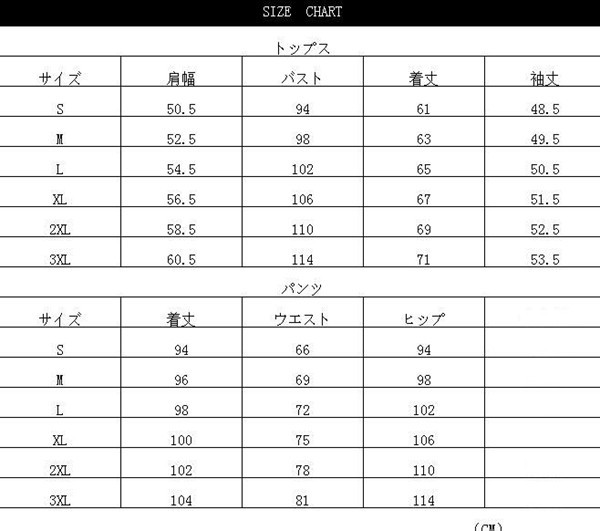 SIZE CHART
トップス
サイズ 肩幅 バスト 着丈 袖丈
S 50.5 94 61 48.5
M 52.5 98 63 49.5
L 54.5 102 65 50.5
XL 56.5 106 67 51.5
2XL 58.5 110 69 52.5
3XL 60.5 114 71 53.5
パンツ
サイズ 着丈 ウエスト ヒップ
S 94 66 94
M 96 69 98
L 98 72 102
XL 100 75 106
2XL 102 78 110
3XL 104 81 114
(CM)